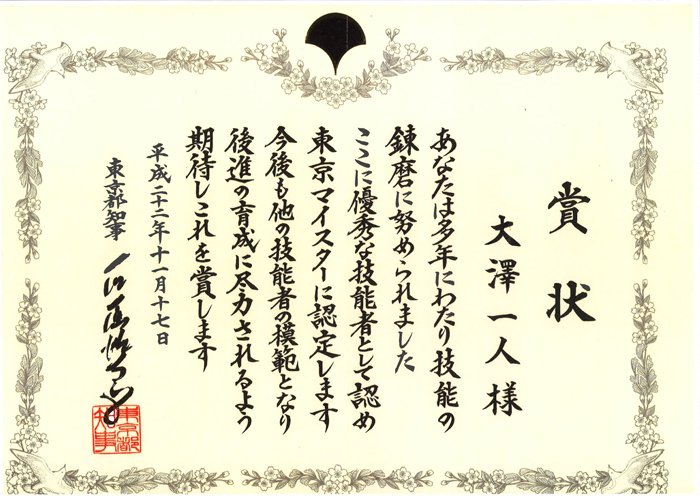 賞状
大澤一人様
あなたは多年にわたり技能の
錬磨に努められました
ここに優秀な技能者として認め
東京マイスターに認定します
今後も他の技能者の模範となり
後進の育成に尽力されるよう
期待しこれを賞します
平成二十二年十一月十七日
東京都知事
東京都
知事